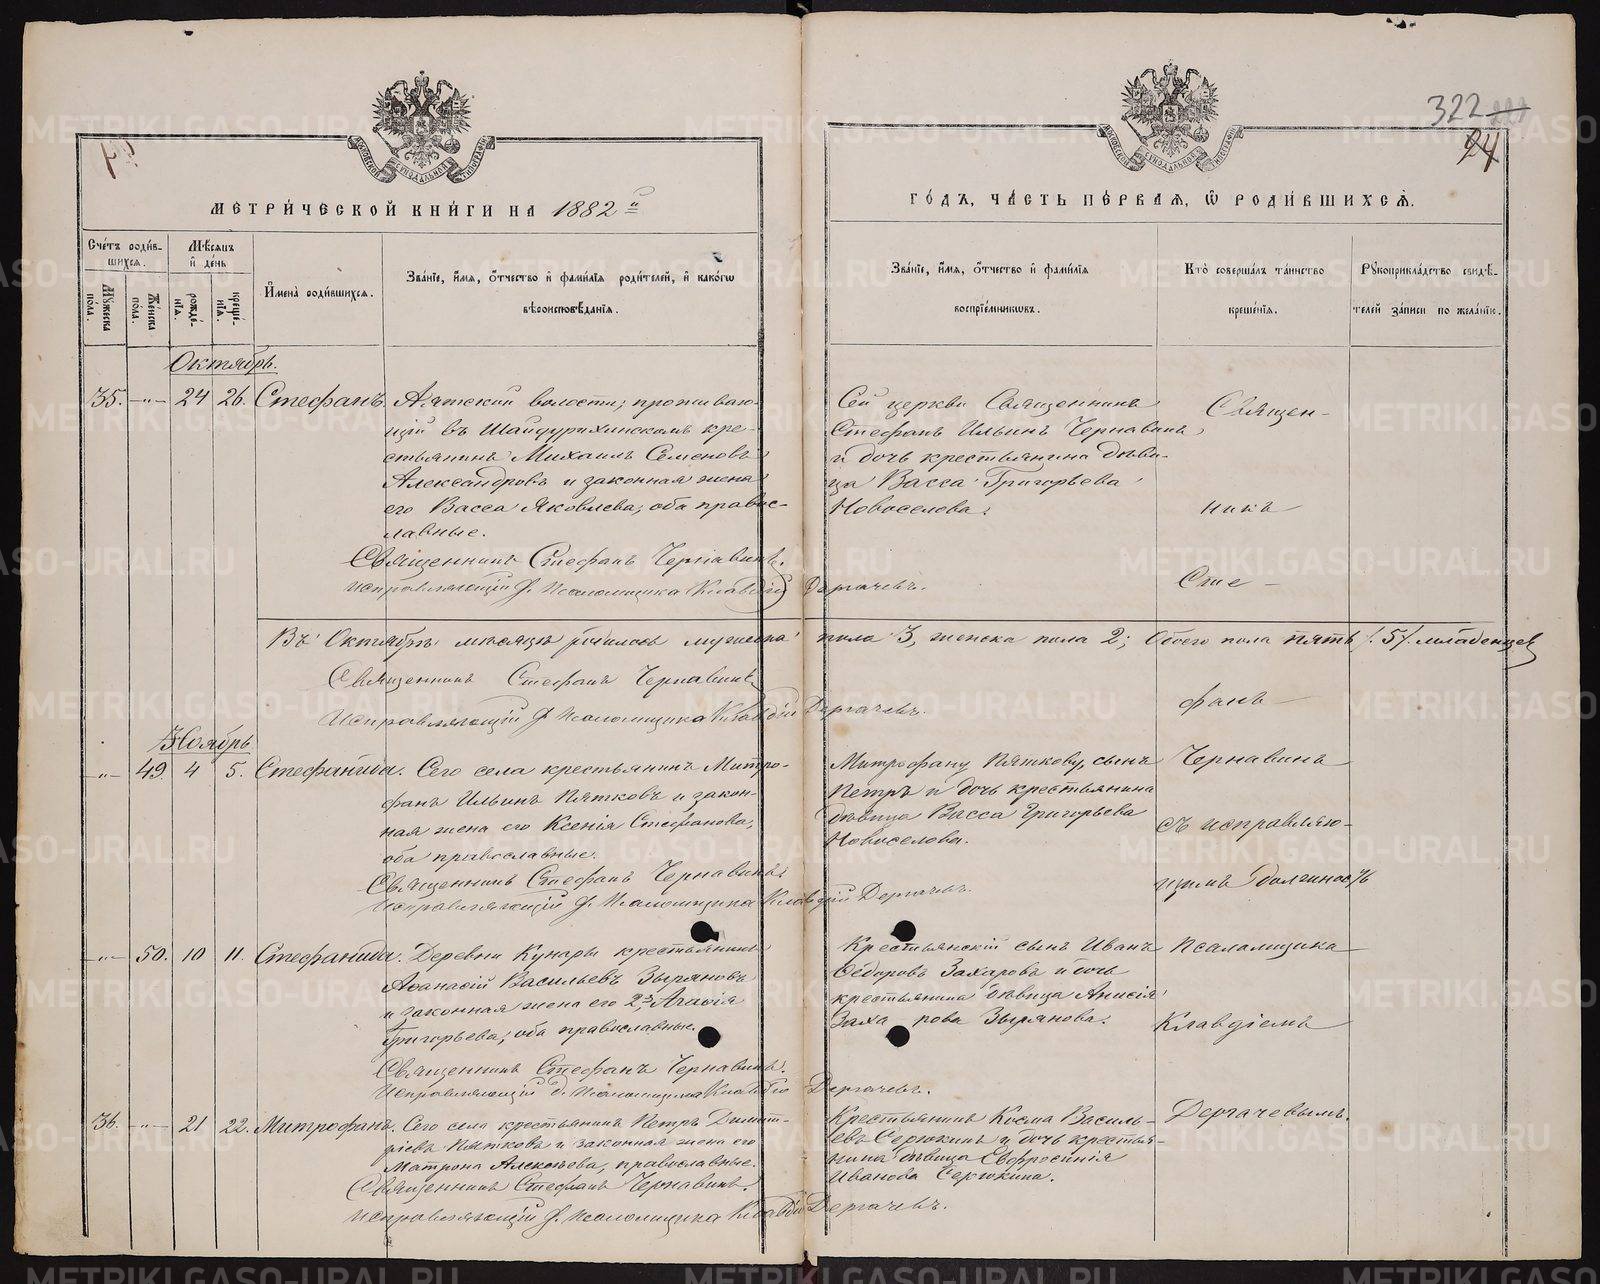 322
24
МЕТРИ́ЧЕСКОЙ КНИ́ГИ НА 1882й
ГО́ДЪ, ЧА́СТЬ ПЕ́РВАЯ, Ѡ РОДИ́ВШИХСѦ.
Сче́тъ роди́в-
шихся.
Мѣ́сяцъ
и҆ де́нь
Му́жеска
по́ла.
Же́нска
по́ла.
рожде́-
нїя.
креще́-
нїя.
И҆мена̀ роди́вшихся.
Зва́нїе, и҆́мя, ѻ҆́тчество и҆ фами́лїя роди́телей, и҆ како́гѡ
вѣроисповѣ́данїя.
Зва́нїе, и҆́мя, ѻ҆́тчество и҆ фами́лїя
воспрїе́мникѡвъ.
Кто̀ соверша́лъ та́инство
креще́нїя.
Рꙋкоприкла́дство свидѣ́-
телей за́писи по жела́нїю.
Октябрь.
35. -"- 24 26. Стефанъ.
Аятской волости, проживаю-
щій въ Шайдурихинскомъ кре-
стьянинъ Михаилъ Семеновъ
Александровъ и законная жена
его Васса Яковлева, оба правос-
лавные.
Священникъ Стефанъ Чернавинъ.
Исправляющій д. Псаломщика Клавдій Дергачевъ.
Сей церкви Священникъ
Стефанъ Ильинъ Чернавинъ,
и дочь крестьянина дѣви-
ца Васса Григорьева
Новоселова.
Священ-
никъ
Сте-
Въ Октябрѣ мѣсяцѣ родилось мужеска пола 3, женска пола 2; Обоего пола пять /.5/. младенцев
Священникъ Стефанъ Чернавинъ
Исправляющій д. Псаломщика Клавдій Дергачевъ.
фанъ
Ноябрь
-"- 49. 4 5. Стефанида.
Сего села крестьянинъ Митро-
фанъ Ильинъ Пятковъ и закон-
ная жена его Ксенія Стефанова,
оба православные.
Священникъ Стефанъ Чернавинъ.
Исправляющій д. Псаломщика Клавдій Дергачевъ.
Митрофану Пяткову, сынъ
Петръ и дочь крестьянина
дѣвица Васса Григорьева
Новоселова.
Чернавинъ
съ исправляю-
щимъ должность
-"- 50. 10 11. Стефанида.
Деревни Кунары крестьянинъ
Аѳанасій Васильевъ Зыряновъ
и законная жена его 2я, Агафія
Григорьева, оба православные.
Священникъ Стефанъ Чернавинъ.
Исправляющій д. Псаломщика Клавдій Дергачевъ.
Крестьянскій сынъ Иванъ
Ѳедоровъ Захаровъ и дочь
крестьянина дѣвица Анисія
Заха рова Зырянова.
Псаломщика
Клавдіемъ
36. -"- 21 22. Митрофанъ.
Сего села крестьянинъ Петръ Димит-
ріевъ Пятковъ и законная жена его
Матрона Алексѣева, православные.
Священникъ Стефанъ Чернавинъ.
Исправляющій д. Псаломщика Клавдій Дергачевъ.
Крестьянинъ Косма Василь-
евъ Серюкинъ и дочь крестья-
нина дѣвица Евфросинія
Иванова Серюкина.
Дергачевымъ.